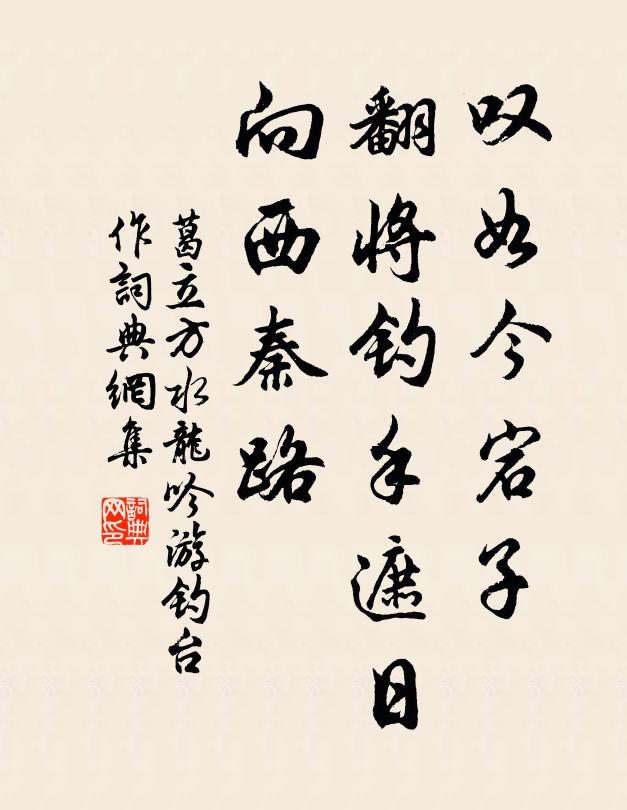 叹如今宕子
翻将钓手遮日
向西秦路
葛立方水龍吟游钓台
作詞典網集
詞典网印